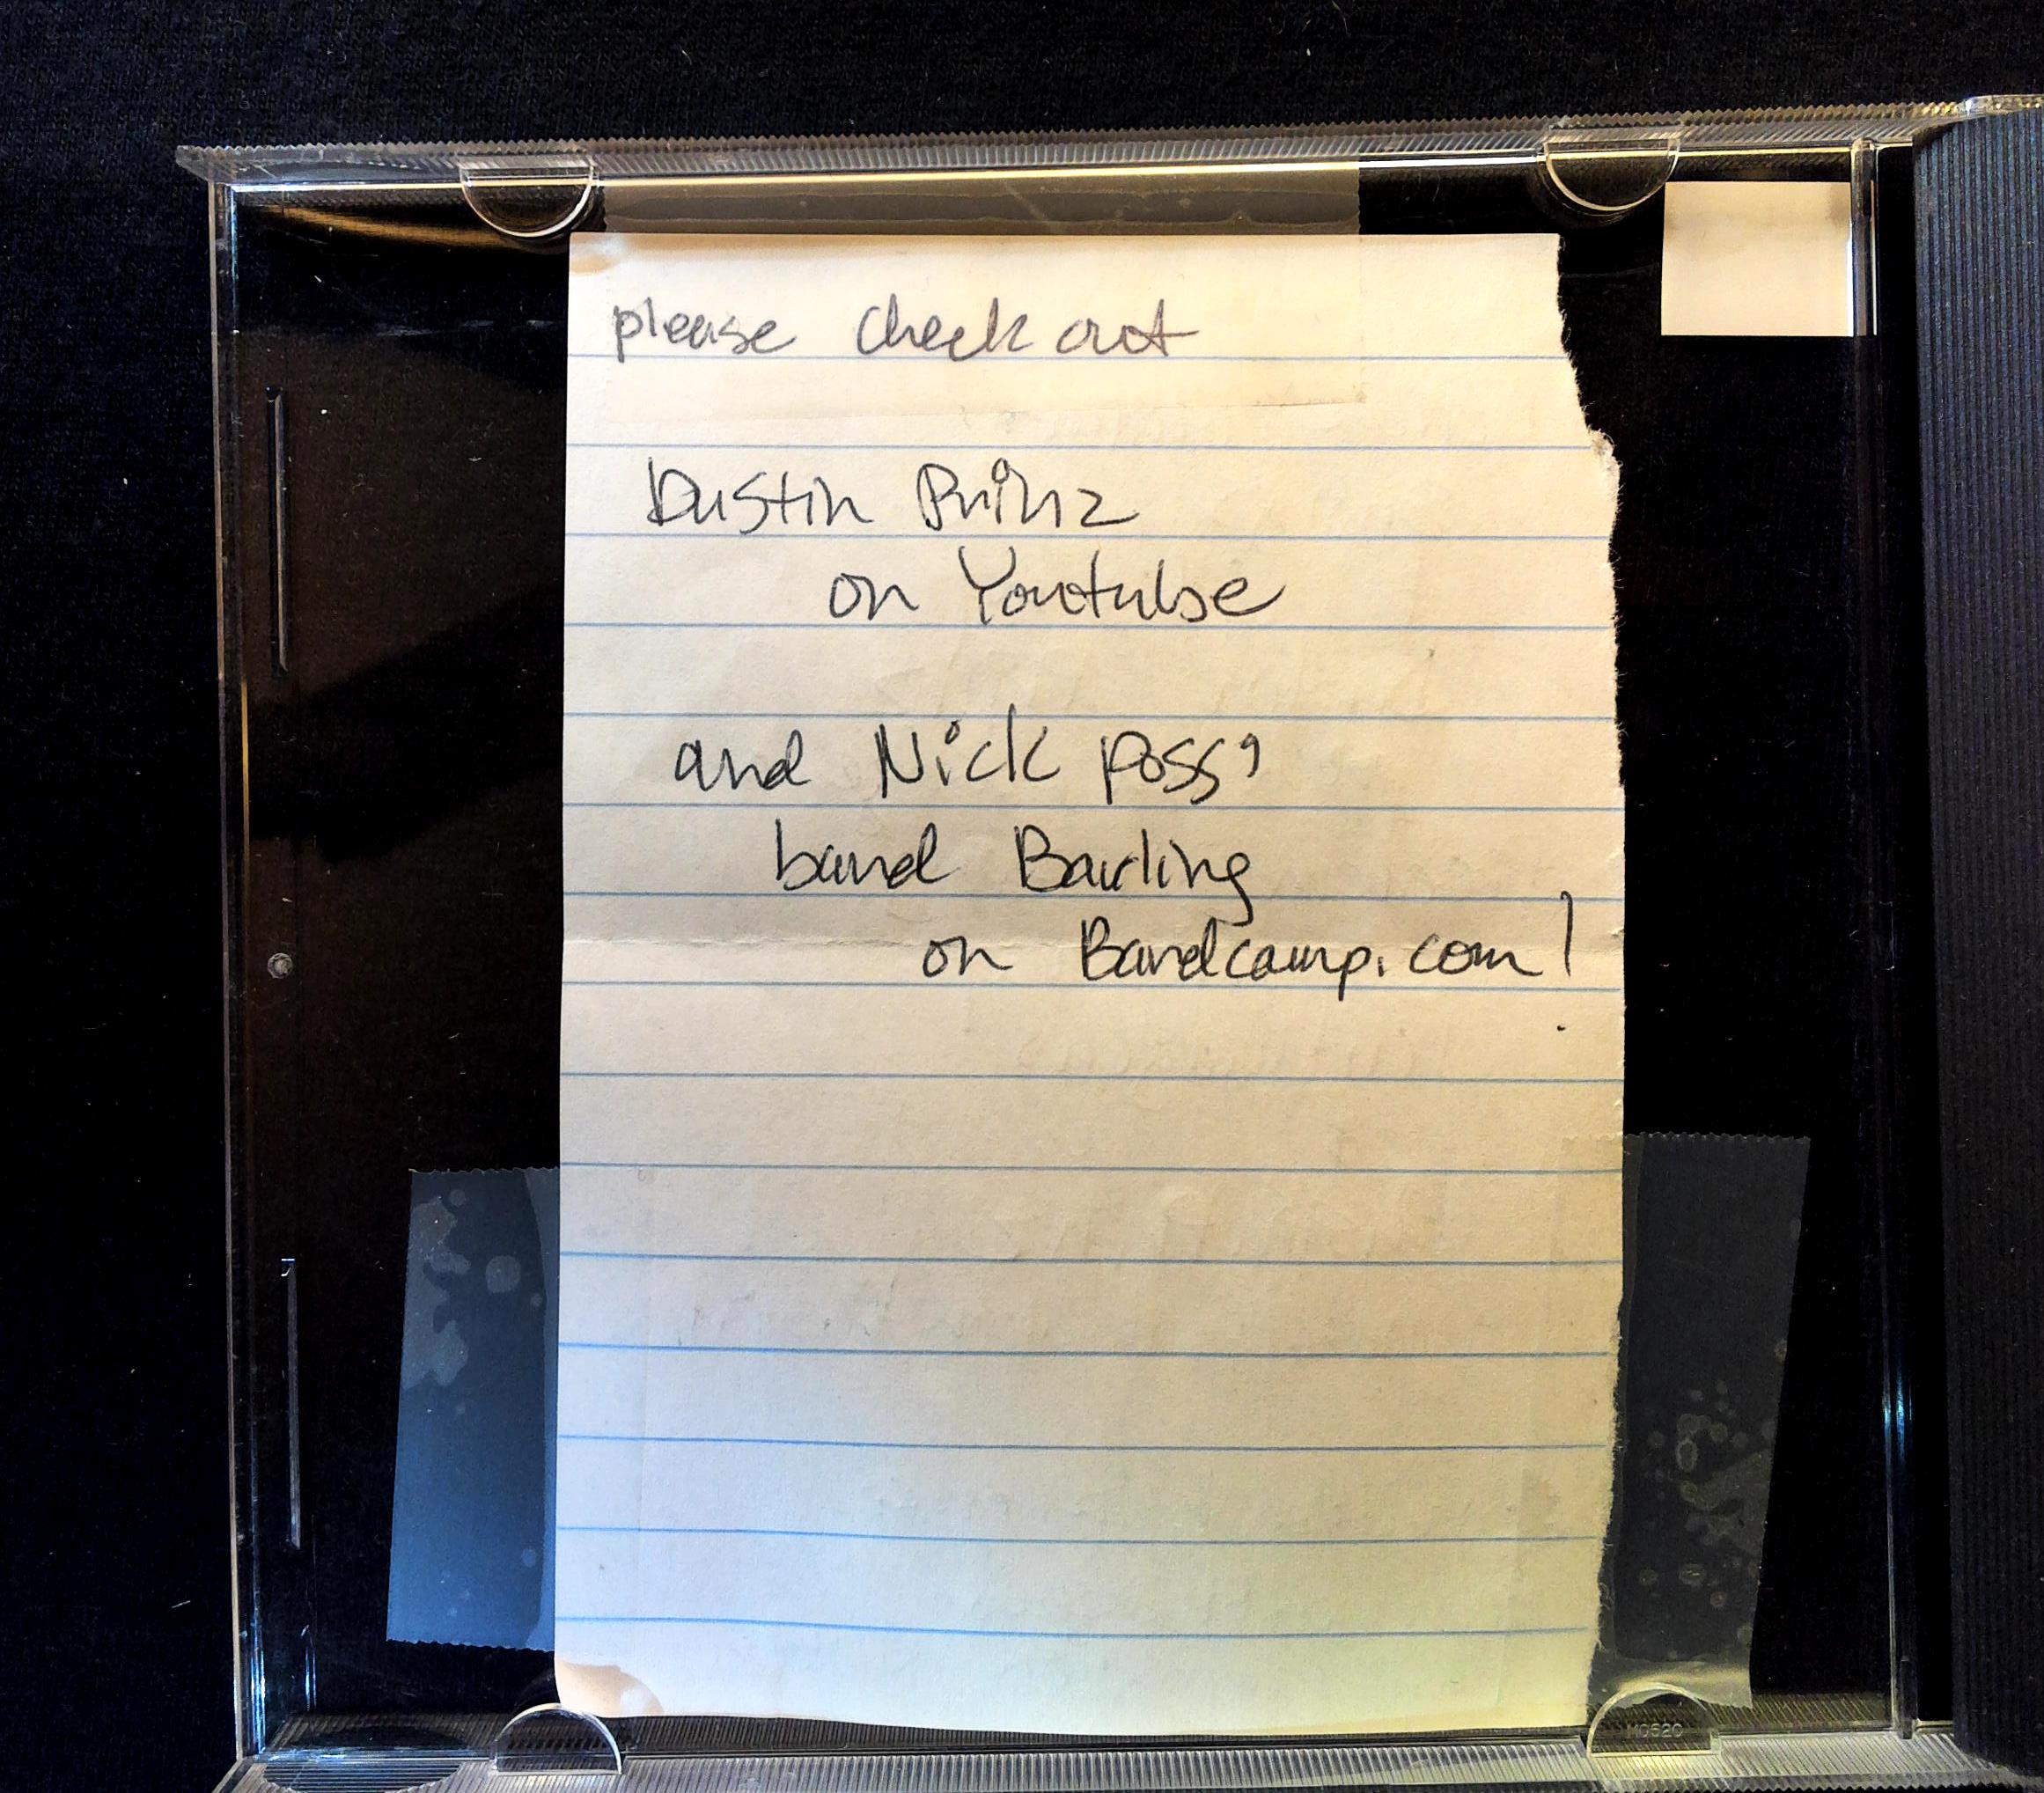 please check out
Dustin Prinz
on Youtube
and Nick Poss'
band Barling
on Bandcamp.com!
MC520